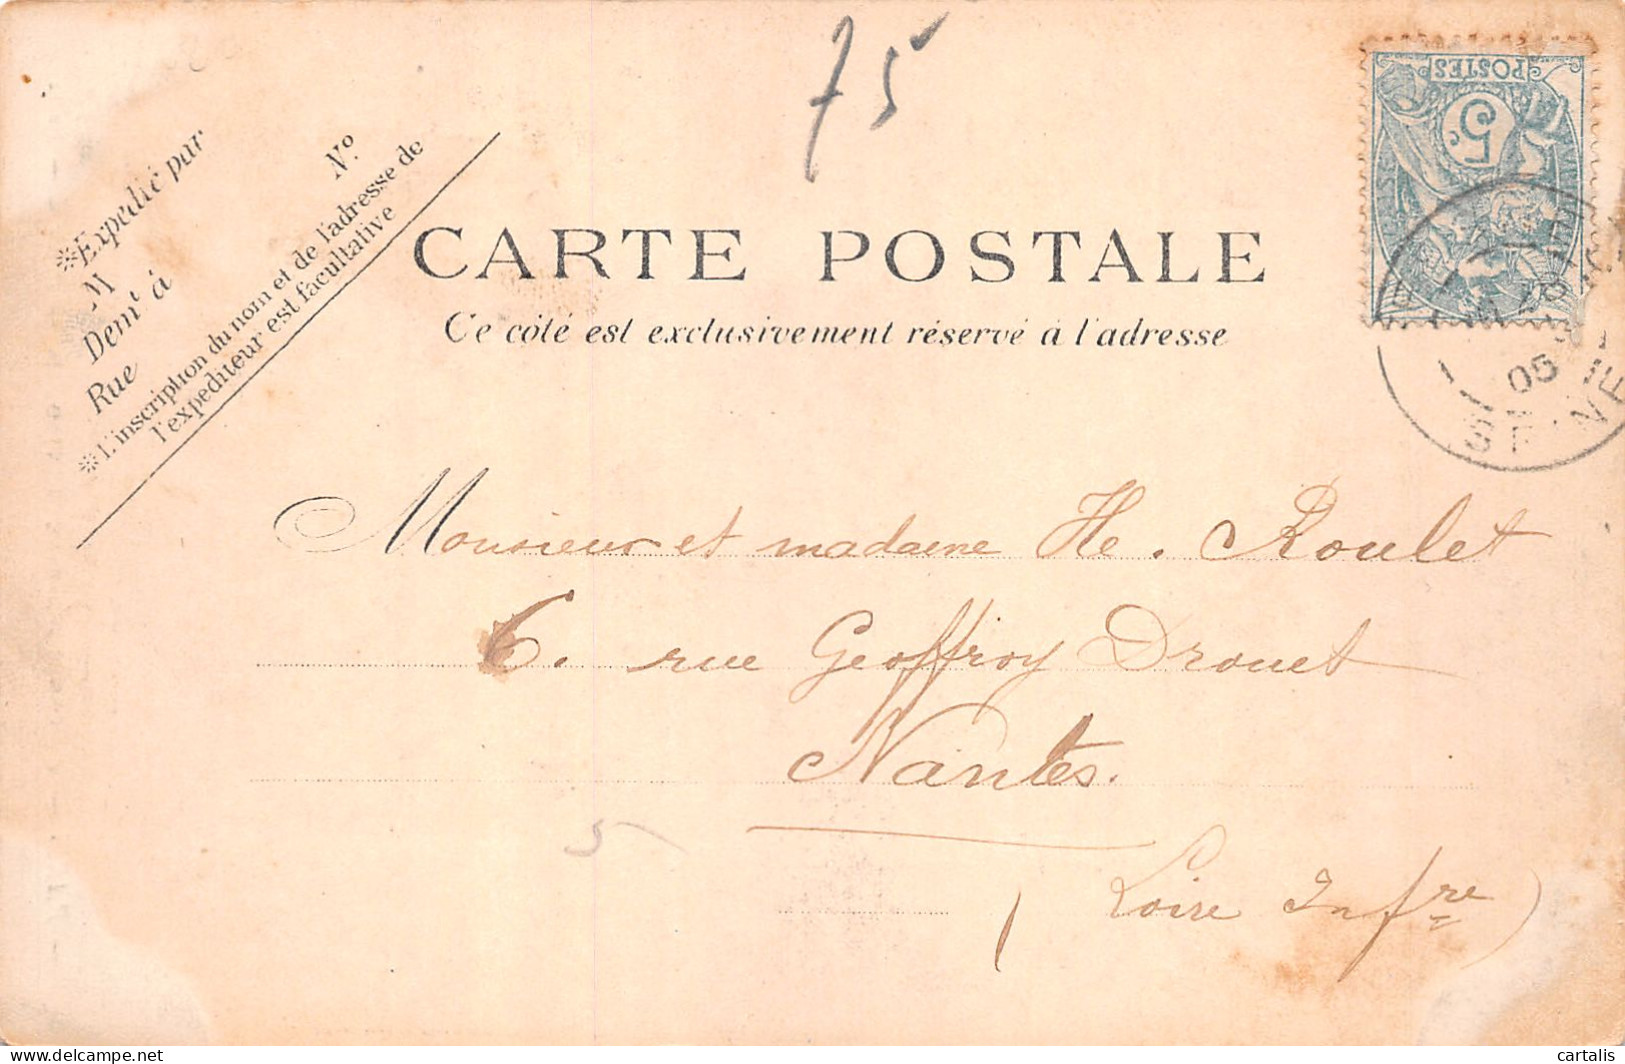 75
POSTES
5
05
SEINE
※Expédié par
M
Demt à
Rue
No.
※L'inscription du nom et de l'adresse de
l'expéditeur est facultative
CARTE POSTALE
Ce côté est exclusivement réservé à l'adresse
Monsieur et madame He. Roulet
6. rue Geoffroy Drouet
Nantes.
5
( Loire Infre )
delcampe.net
cartalis